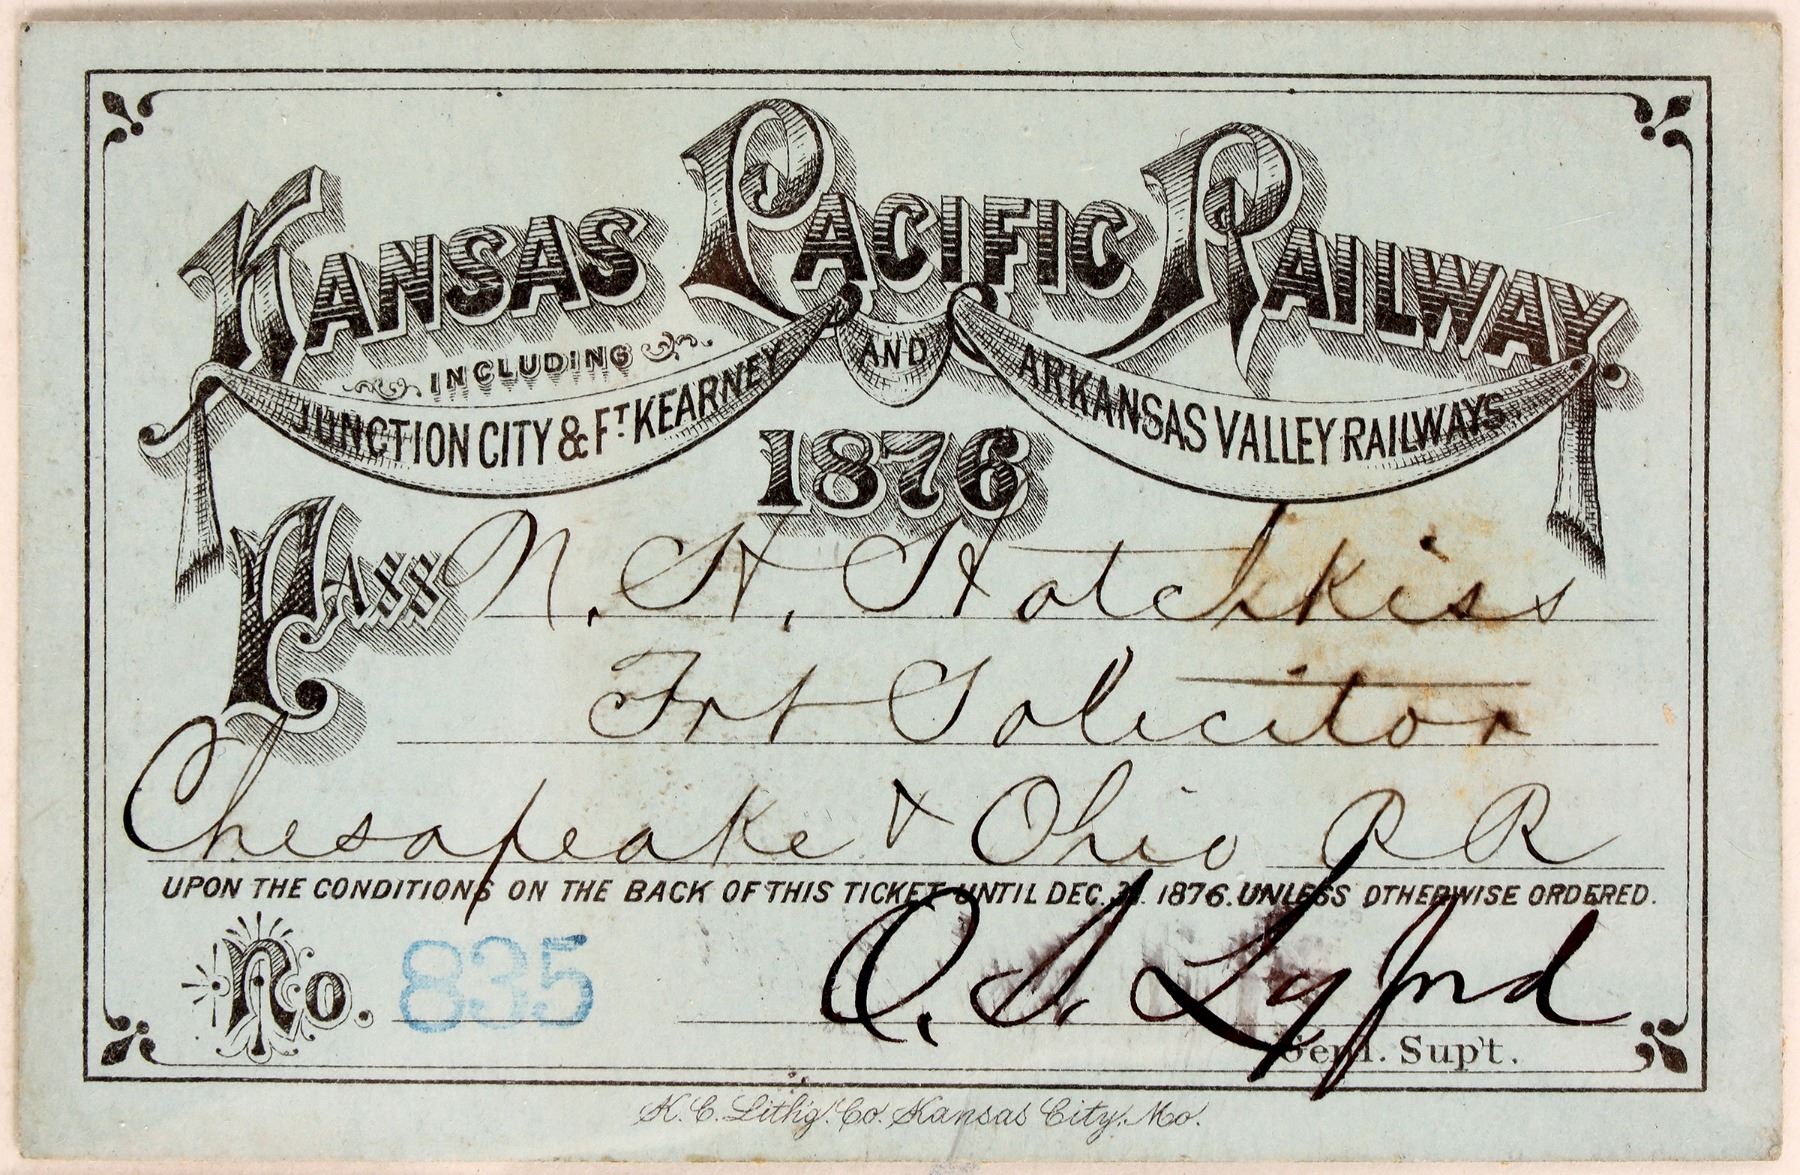 KANSAS PACIFIC RAILWAY.
INCLUDING
JUNCTION CITY & FT. KEARNEY AND ARKANSAS VALLEY RAILWAYS.
1876
PASS N. H. Hotchkiss
Frt Solicitor
Chesapeake & Ohio R R
UPON THE CONDITIONS ON THE BACK OF THIS TICKET UNTIL DEC. 31. 1876. UNLESS OTHERWISE ORDERED.
No. 835
O. S. Lyford
Genl. Sup't.
K. C. Lithg. Co. Kansas City, Mo.